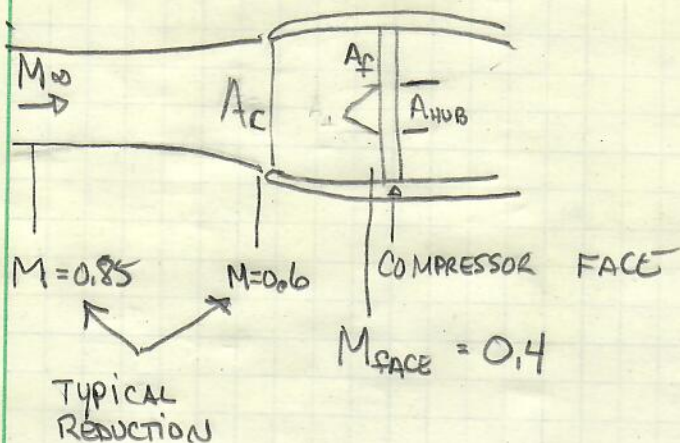 M∞
A_f
A_c
A_HUB
M = 0.85
M = 0.6
COMPRESSOR FACE
M_FACE = 0.4
TYPICAL
REDUCTION